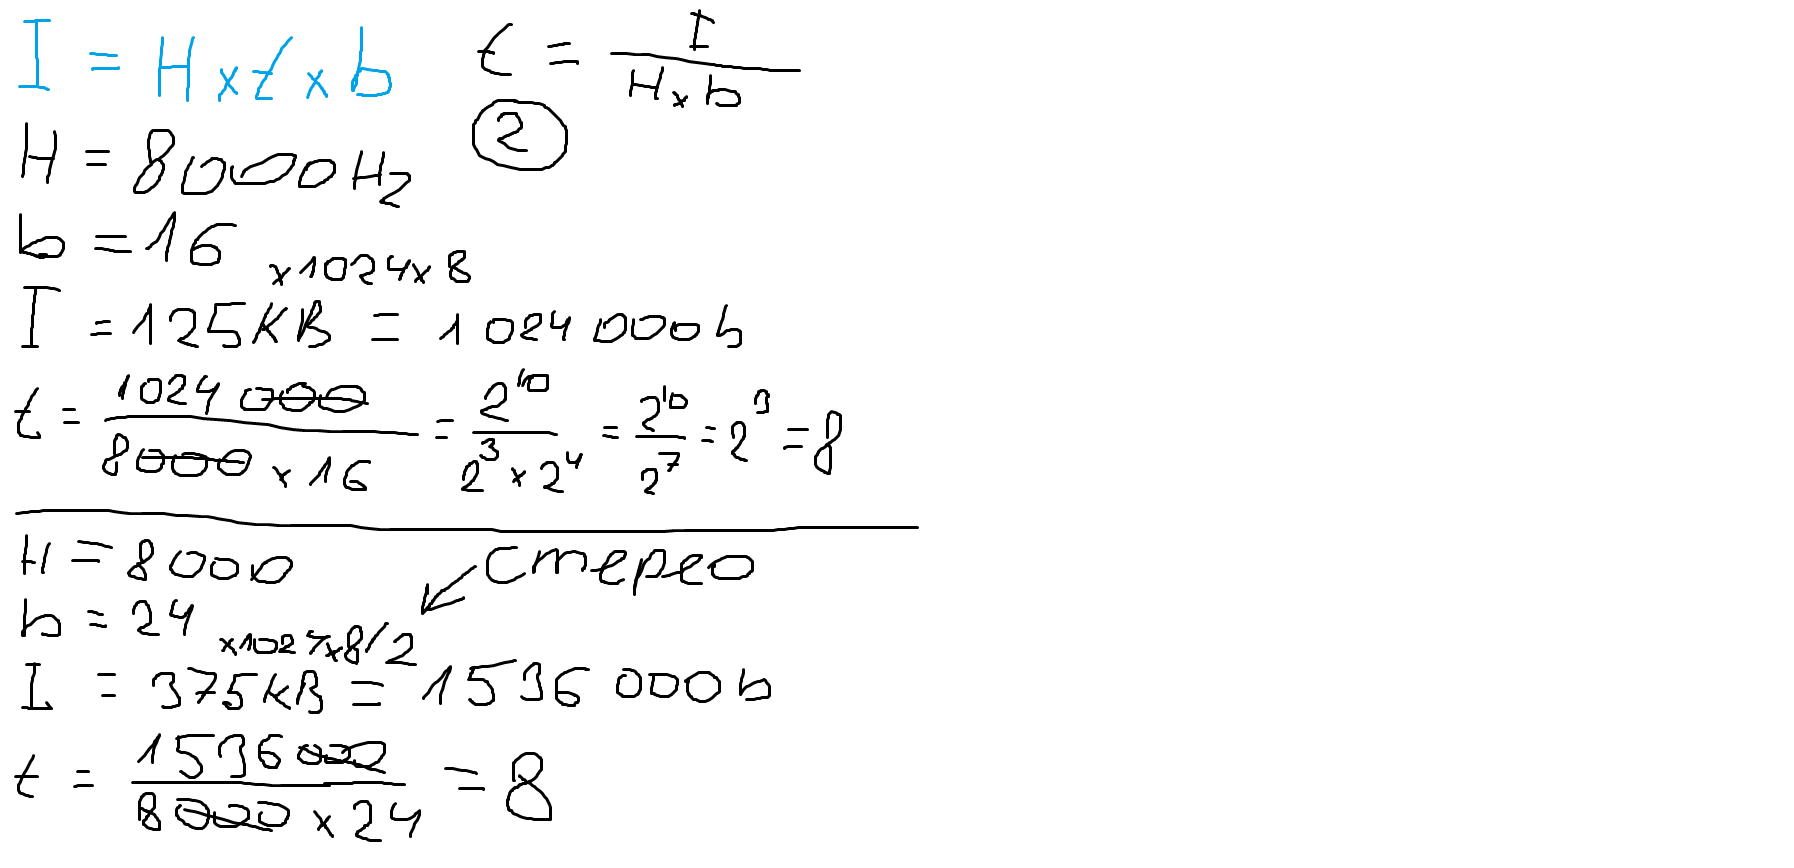 I = H x t x b
t = I / (H x b)
2
H = 8000 Hz
b = 16
x1024x8
I = 125KB = 1024 000b
t = 1024 000 / (8000 x 16) = 2^10 / (2^3 x 2^4) = 2^10 / 2^7 = 2^3 = 8
H = 8000
стерео
b = 24
x1024x8/2
I = 375KB = 1536 000b
t = 1536 000 / (8000 x 24) = 8